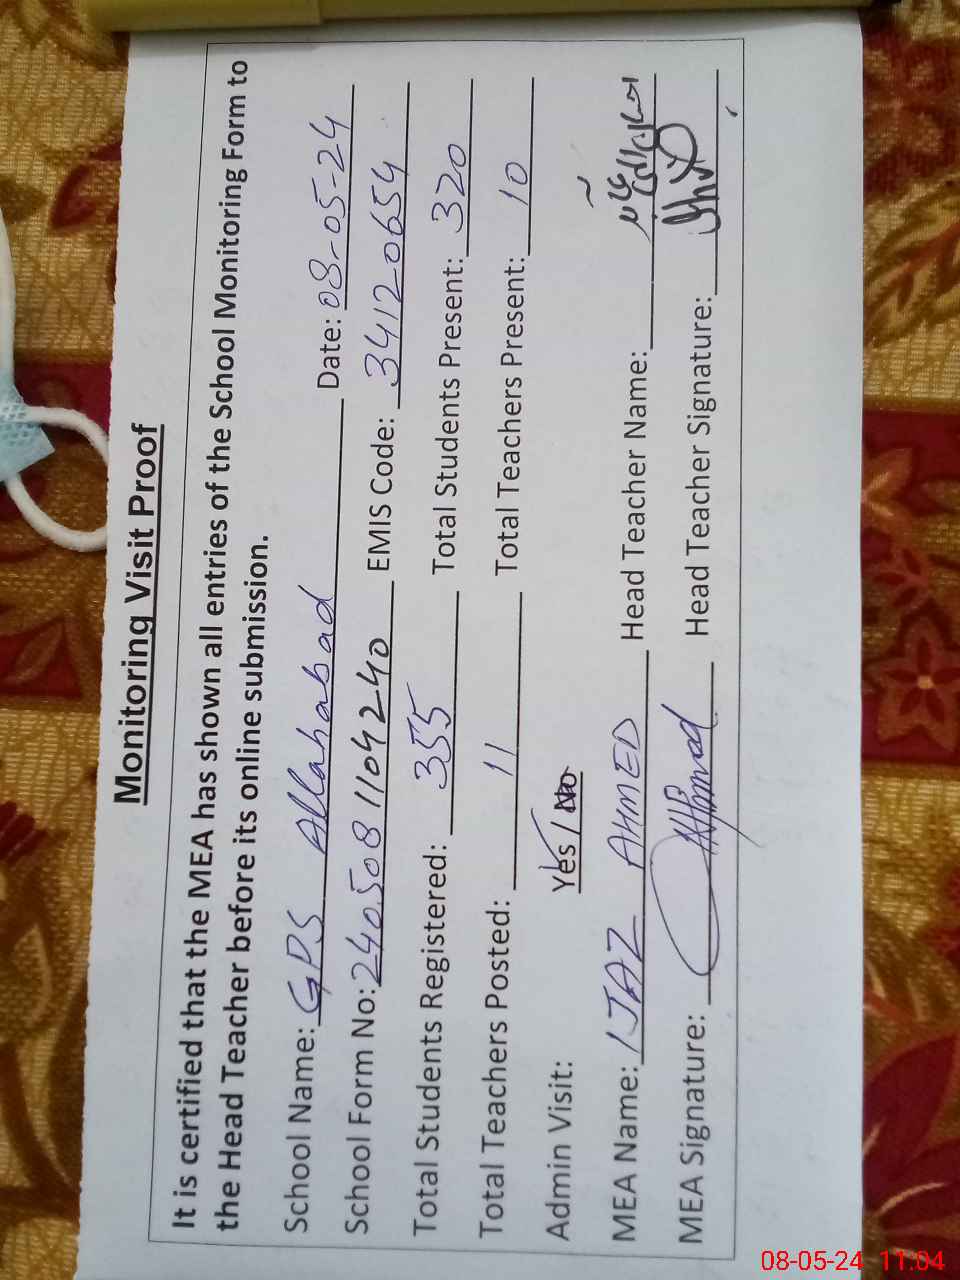 Monitoring Visit Proof
It is certified that the MEA has shown all entries of the School Monitoring Form to
the Head Teacher before its online submission.
School Name: GPS Allahabad Date: 08-05-24
School Form No: 240508 1104240 EMIS Code: 34120654
Total Students Registered: 355 Total Students Present: 320
Total Teachers Posted: 11 Total Teachers Present: 10
Admin Visit: Yes / No
MEA Name: IJAZ AHMED Head Teacher Name:
MEA Signature: Head Teacher Signature:
08-05-24 11:04